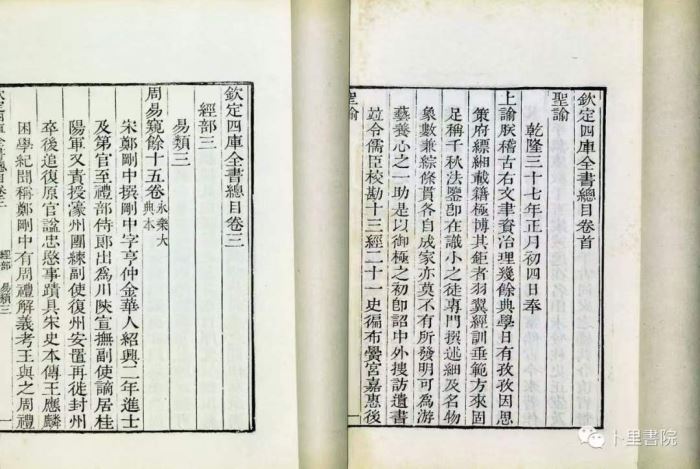 欽定四庫全書總目卷首
聖諭
乾隆三十七年正月初四日奉
上諭朕稽古右文聿資治理幾餘典學日有孜孜因思
策府縹緗載籍極博其鉅者羽翼經訓垂範方來固
足稱千秋法鑒即在識小之徒專門撰述細及名物
象數兼綜條貫各自成家亦莫不有所發明可為游
藝養心之一助是以御極之初即詔中外搜訪遺書
竝令儒臣校勘十三經二十一史徧布黌宮嘉惠後
聖諭
一
欽定四庫全書總目卷三
經部三
易類三
周易窺餘十五卷永樂大典本
宋鄭剛中撰剛中字亨仲金華人紹興二年進士
及第官至禮部侍郎出為川陝宣撫副使謫居桂
陽軍又責授濠州團練副使復州安置再徙封州
卒後追復原官諡忠愍事蹟具宋史本傳王應麟
困學紀聞稱鄭剛中有周禮解義考王與之周禮
欽定四庫全書總目卷三
經部 易類三
一
卜里書院